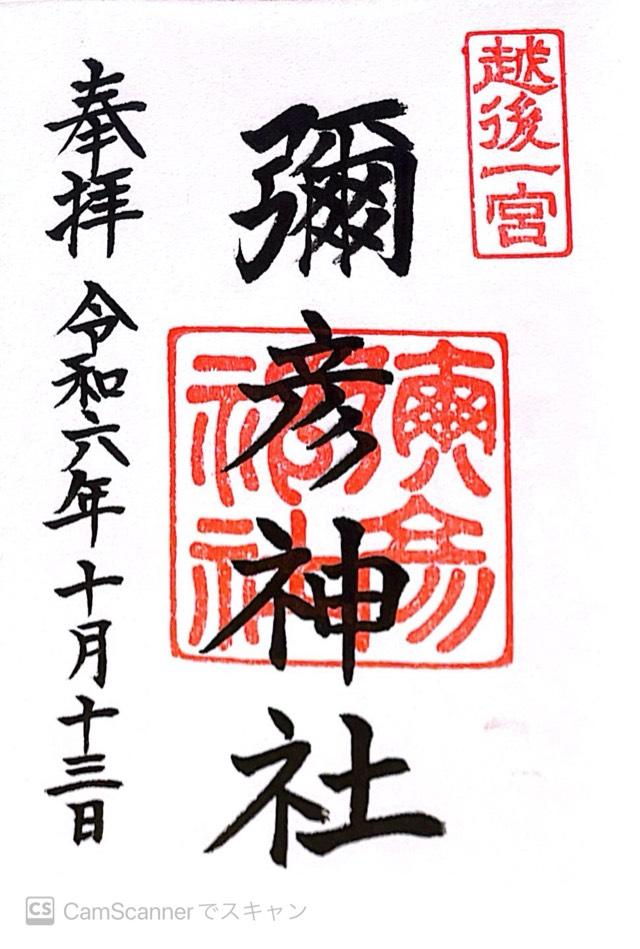 越後一宮
彌彦神社
奉拝 令和六年十月十三日
CS CamScannerでスキャン